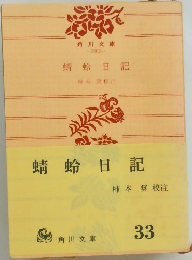 角川文庫
蜻蛉日記
蜻蛉日記
柿本奨校注
角川文庫
33